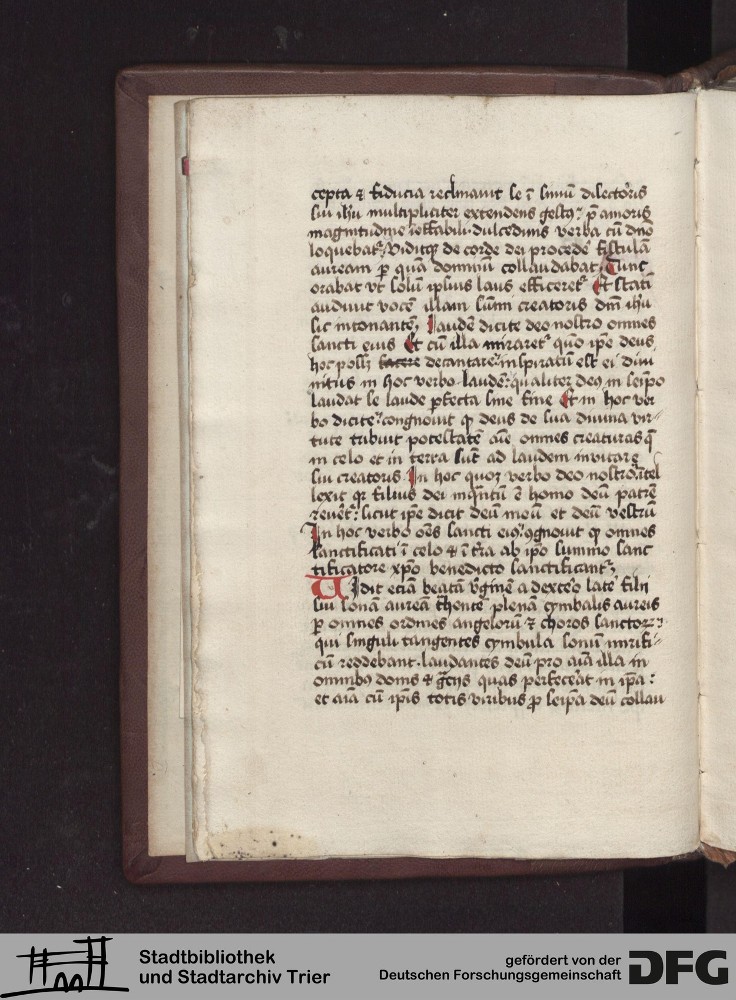 cepta ⁊ fiducia reclinauit se ī sinū dilectoris
sui ihū multipliciter extendens gestꝰ p̄ amoris
magnitudine ieffabili dulcedinis verba cū dn̄o
loquebat᷑ Viditqꝫ de corde dei procede᷑ fistulā
auream ꝑ quā dominū collaudabat Tunc
orabat vt solū ipsius laus efficeret᷑ Et stati
audiuit vocē illam sūmi creatoris dm̄ ihū
sic intonantē Laudē dicite deo nostro omnes
sancti eius Et cū illa miraret᷑ quō ipe deus
hoc possꝫ facere decantare inspiratū est ei diui
nitus in hoc verbo laudē qualiter deꝰ in seipo
laudat se laude ꝑfecta sine fine Et in hoc ver
bo dicite congnouit ꝙ deus de sua diuina vir
tute tribuit potestatē aīe omnes creaturas q̄
in celo et in terra sūt ad laudem inuitare
sui creatoris In hoc quoꝫ verbo deo nostro ītel
lexit qꝛ filius dei inq̄ntū ē homo deū patrē
reuet᷑ sicut ipe dicit deū meū et deū vestrū
In hoc verbo oēs sancti eiꝰ ꝯgnouit ꝙ omnes
sanctificati ī celo ⁊ ī tr̄a ab ipo summo sanc
tificatore xp̄o benedicto sanctificant᷑
Vidit eciā beatā v̄ginē a dextero late᷑ filii
sui zonā aureā h̄entē plenā cymbalis aureis
ꝑ omnes ordines angelorū ⁊ choros sanctorꝫ
qui singuli tangentes cymbula sonū mirifi
cū reddebant laudantes deū pro aīa illa in
omnibꝰ donis ⁊ gr̄cijs quas perfecerat in ipa
et aīa cū ipis totis viribus ꝓ seipa deū collau
Stadtbibliothek
und Stadtarchiv Trier
gefördert von der
Deutschen Forschungsgemeinschaft
DFG